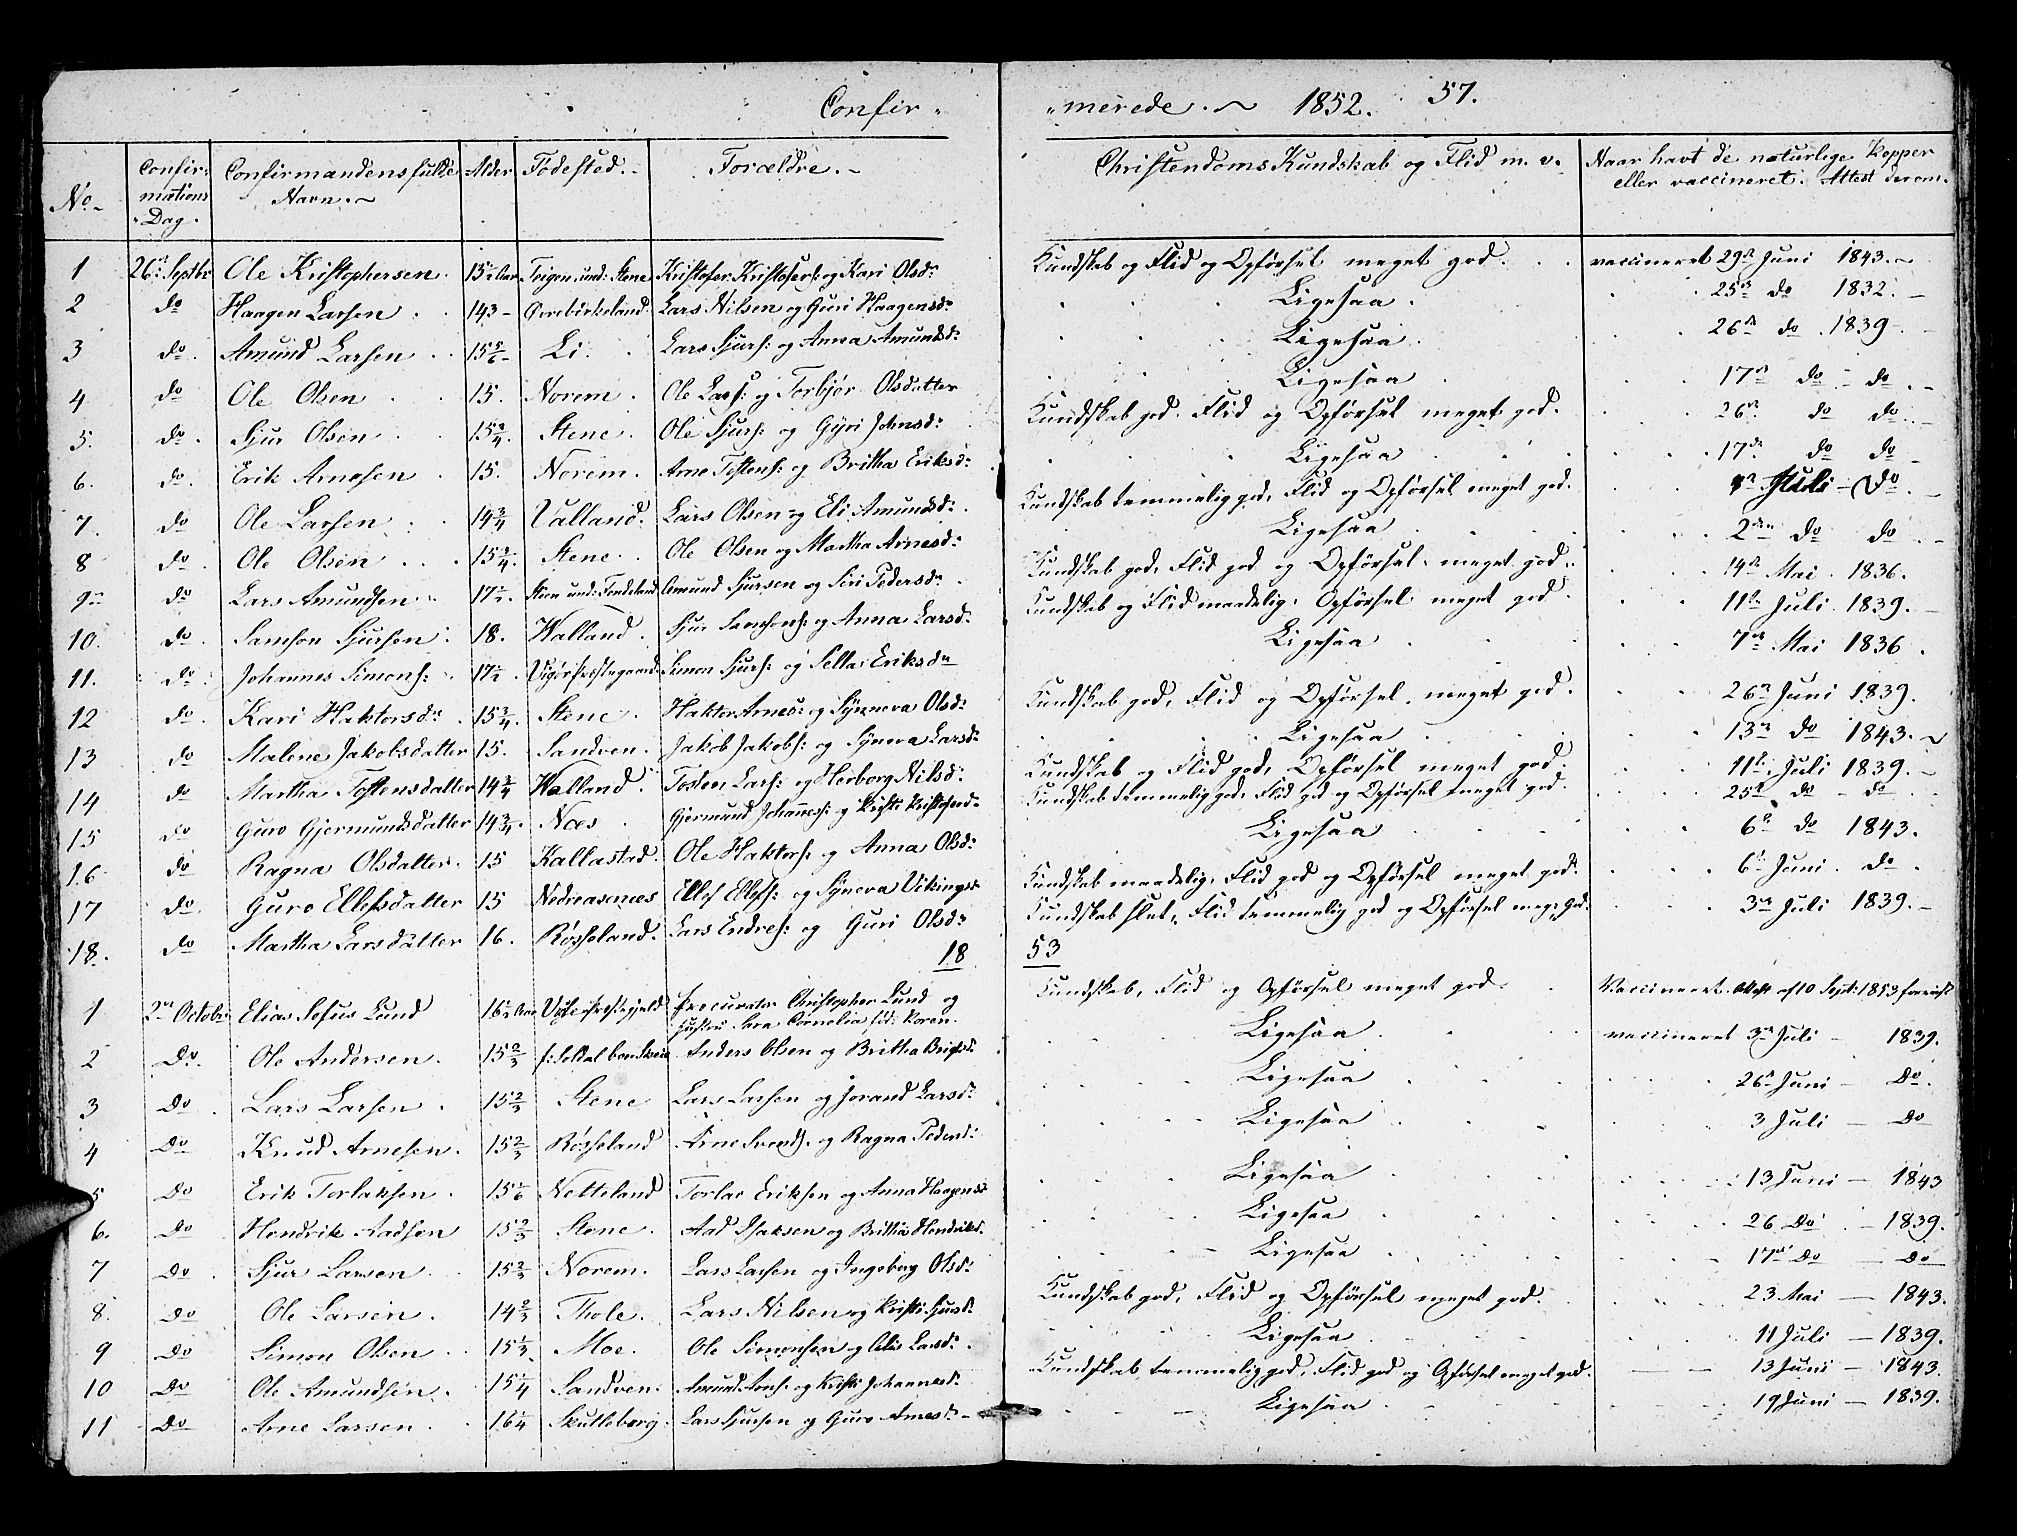 Confir-
-merede. ~ 1852. 57.
No- Confir-mations Dag. Confirmandens fulde Navn. ~ Alder Fødested. - Forældre. - Christendoms Kundskab og Flid m. v. Naar havt de naturlige Kopper eller vaccineret. Attest derom.
1 26de Septbr Ole Kristophersen 15½ Aar Teigen und: Stene Kristofer Kristofers: og Kari Olsdr Kundskab og Flid og Opførsel meget god. vaccineret 29de Juni 1843. ~
2 do Haagen Larsen 143- Øvrebirkeland Lars Nilsen og Guri Haagensdr Ligesaa. 25de do 1832. -
3 do. Amund Larsen 15 5/6 - Li. Lars Sjurs: og Anna Amundsdr Ligesaa. 26de do. 1839.
4 do Ole Olsen 15. Norem. Ole Lars: og Torbjør Olsdatter Ligesaa 17de do - do. -
5. do. Sjur Olsen 15¾. Stene. Ole Sjurs: og Gyri Johnsdr Kundskab god. Flid og Opførsel meget god. 26de do do.
6. do. Erik Arnesen 15. Norem. Arne Tostens: og Britha Eriksdr Ligesaa 17de do do -
7. do Ole Larsen 14¾ Valland. Lars Olsen og Eli Amundsdr. Kundskab temmelig god, Flid og Opførsel meget god. Juli - do. -
8 do. Ole Olsen 15¾. Stene. Ole Olsen og Martha Arnesdr Ligesaa 2den do do. -
9 do Lars Amundsen 17½ Steen und: Amund Sjursen og Siri Pedersdr Kundskab god, Flid god og Opførsel meget god. 14de Mai. 1836.
10. do. Samson Sjursen 18. Walland. Sjur Samsons: og Anna Larsdr Kundskab og Flid maadelig. Opførsel meget god. 11te Juli 1839. -
11. do. Johannes Simons: 17½. Vigørs Præstegaard Simon Sjurs: og Eriksdr Ligesaa 7de Mai 1836.
12 do. Kari Haktorsdr 15¾. Stene. Haktor Arnes: og Synneva Olsdr Kundskab god, Flid og Opførsel meget god. 26de Juni 1839.
13 do Malene Jakobsdatter 15. Sandven. Jakob Jakobs: og Syneva Larsdr Ligesaa 13de do 1843. ~
14 do Martha Tostensdatter 14¾ Walland. Tosten Lars: og Herborg Nilsdr Kundskab og Flid god, Opførsel meget god. 11te Juli 1839. -
15 do Guro Gjermundsdatter 14¾. Næs. Gjermund Johannes: og Kristi Kristofersdr Kundskab temmelig god, Flid god og Opførsel meget god. 25de do - do
16 do Ragna Olsdatter. 15 Kallastad. Ole Haktors: og Anna Olsdr Ligesaa 6te do 1843.
17 do. Guro Ellefsdatter 15 Nedreaasenæs Ellef Ellefs: og Syneva Vikingsdr Kundskab maadelig, Flid god og Opførsel meget god. 6te Juni. do.
18. do Martha Larsdatter 16. Røsseland. Lars Endres: og Guri Olsdr Kundskab slet, Flid temmelig god og Opførsel meg: god. 3de Juli 1839. -
18 53
1 3die Octobr Elias Sofus Lund 16½ Aar Procurator Christopher Lund og Hustru Sara Cornelia fød: Koren. Kundskab, Flid og Opførsel meget god. Vaccineret. Attest af 10 Septr: 1853 forevist
2 Do. Ole Andersen. 15⅔ Anders Olsen og Britha Ligesaa vaccineret 3de Juli - 1839.
3 Do. Lars Larsen. 15⅔ Stene Lars Larsen og Jorand Larsdr. Ligesaa 26de Juni - Do.
4 Do Knud Arnesen. 15⅔ Røsseland Arne og Ragna Pedersdr Ligesaa 3 Juli - Do
5 Do Erik Torlaksen. 15⅙ Netteland Torlac Eriksen og Anna Haagensdr Ligesaa 13 Juni - 1843
6. Do Hendrik Aadsen 15⅔ Stene. Aad Isaksen og Britha Hendriksdr. Ligesaa 26 Do - 1839.
7 Do. Sjur Larsen 15⅔ Norem. Lars Larsen og Ingeborg Olsdr Ligesaa 17de Do - Do
8. Do Ole Larsen. 14⅔ Thole. Lars Nilsen og Kristi Sjursdr Kundskab god, Flid og Opførsel meget god. 23 Mai - 1843.
9 Do Simon Olsen. 15⅓. Moe. Ole Simonsen og Larsdr. Ligesaa 11 Juli - 1839.
10 Do Ole Amundsen. 15¼ Sandven. Amund Arns: og Kristi Johannesdr Kundskab temmelig god, Flid god og Opførsel meget god. 13 Juni - 1843.
11 Do Arne Larsen 16¼ Skutleberg. Lars Sjursen og Guro Arnesdr - Ligesaa 19 Juni - 1839.